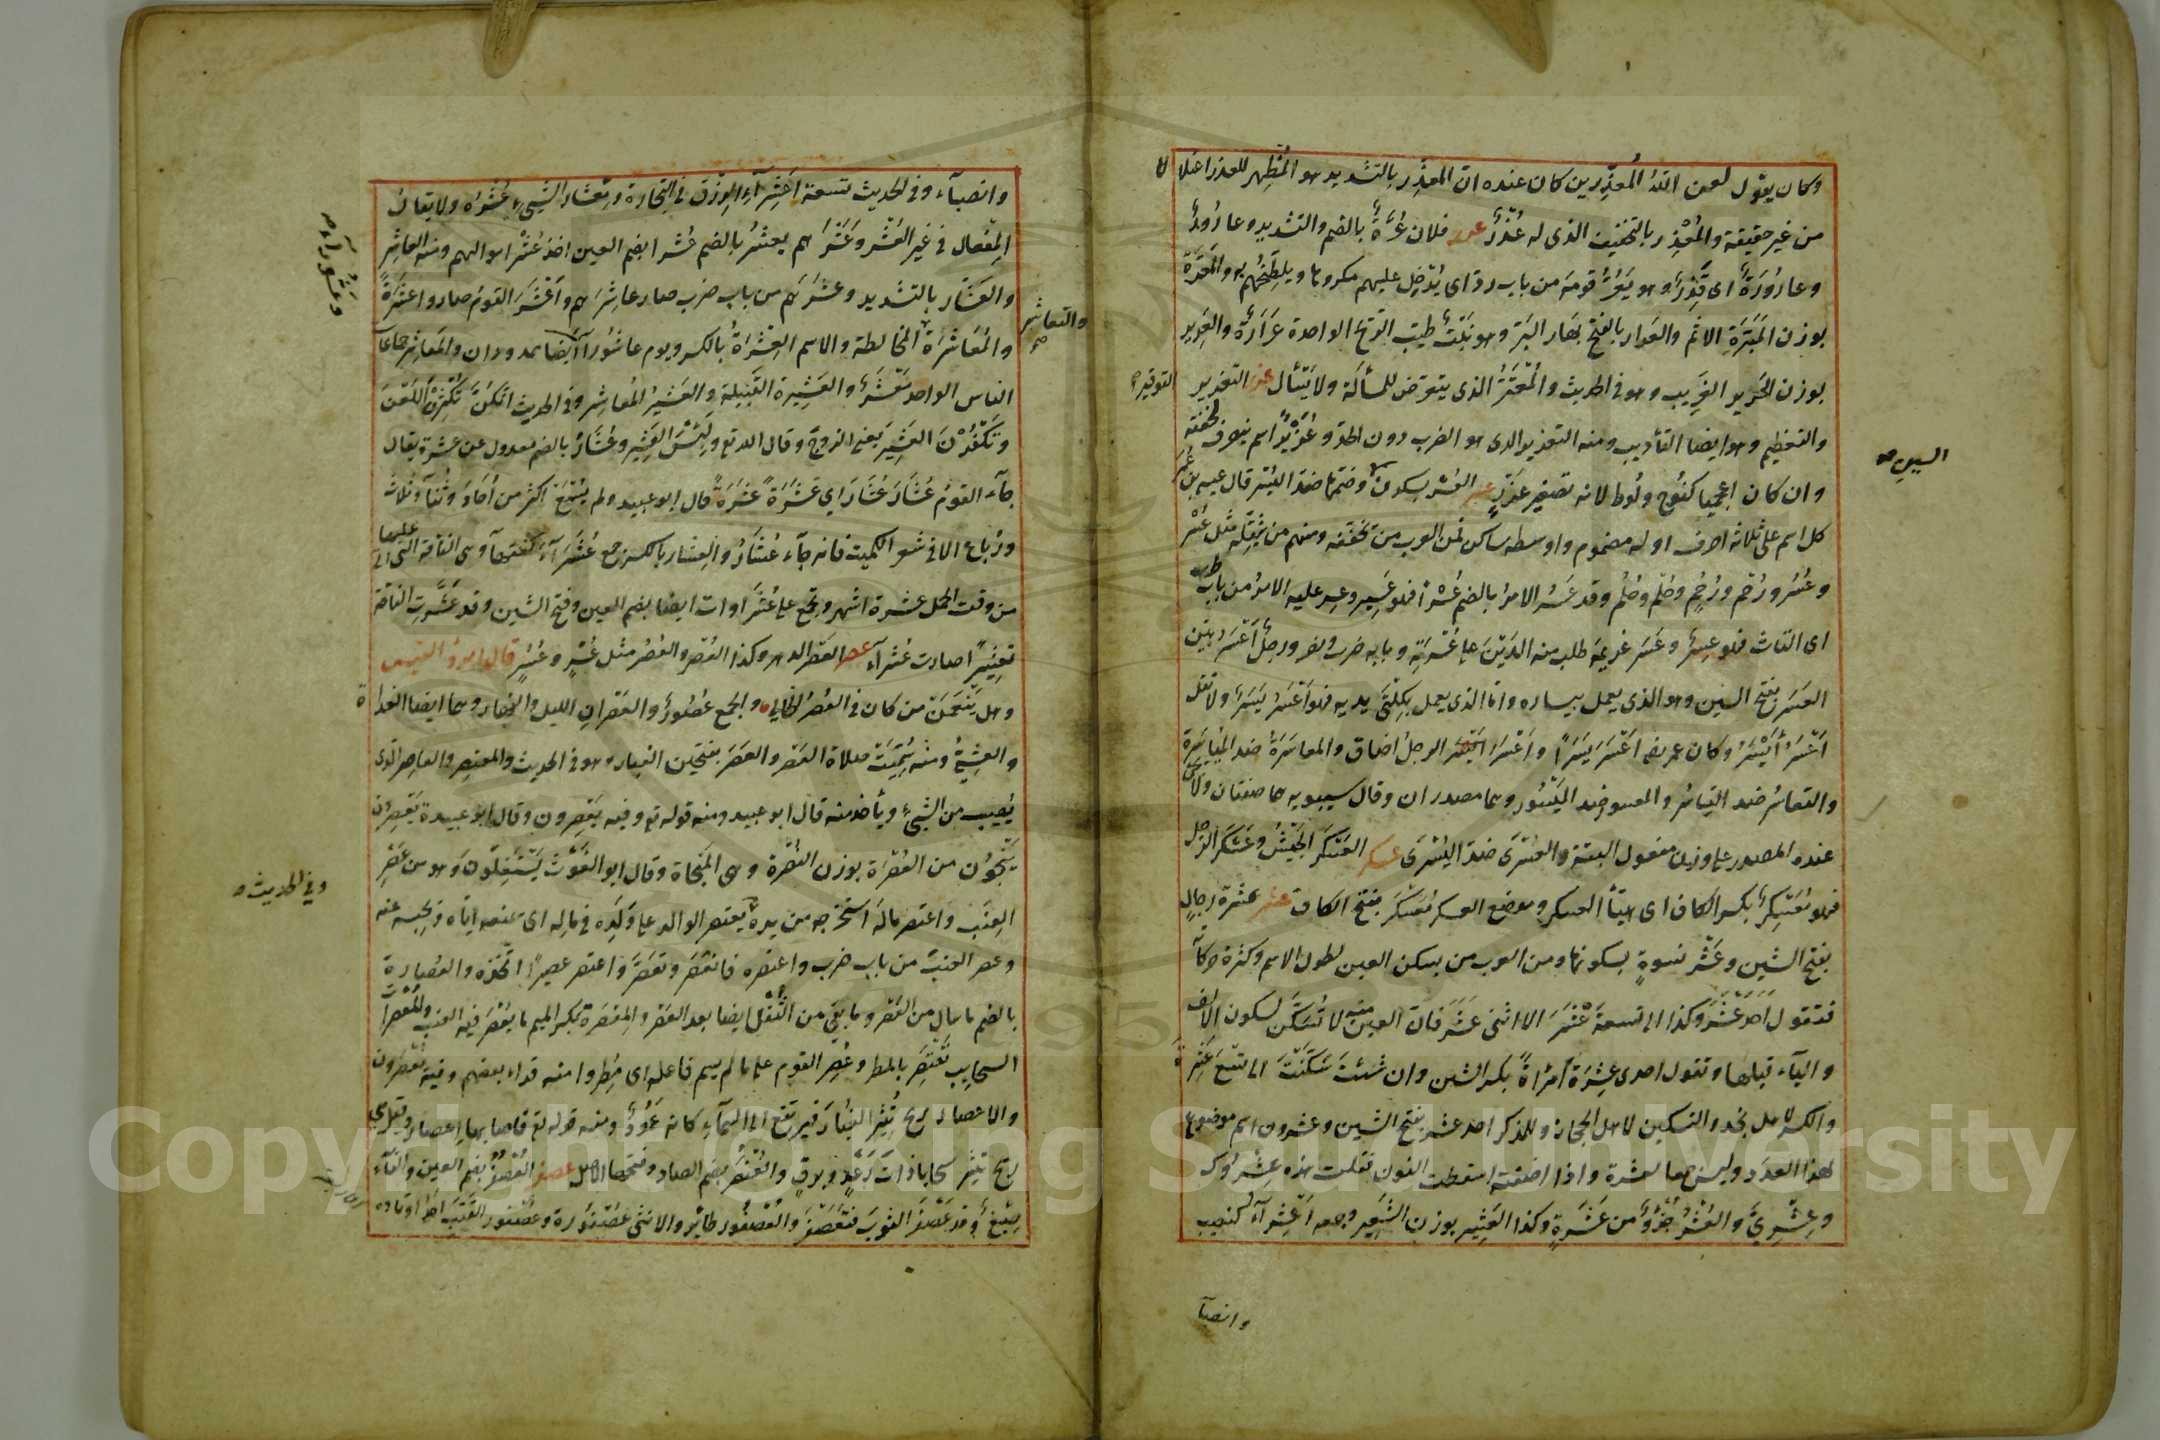 وكان يقول لعن الله المُعذِّرين كان عنده ان المعذِّر بالتشديد هو المُظهِر للعذر اعتلالا
من غير حقيقة والمُعْذِر بالتخفيف الذى له عُذْرٌ عرر فلان عُرَّةٌ بالضم والتشديد وعارُورٌ
وعارُورَةٌ اى قَذِرٌ وهو يَعُرُّ قومَه من باب ردّ اى يُدْخِل عليهم مكروها ويلطخهم به والمَعَرَّةُ
بوزن المَبَرَّةِ الاثم والعَرار بالفتح بَهار البَر وهو نَبْتٌ طيب الريح الواحدة عَرَارَةٌ والعَرِير
بوزن الحَرير الغَرِيب وهو فى الحديث والمُعْتَرُّ الذى يتعرّض للمسألة ولا يَسْأل عزر التعزير التوقير
والتعظيم وهو ايضا التأديب ومنه التعزير الذى هو الضرب دون الحدّ وعُزَيْرٌ اسم ينصرف لخفته
وان كان اعجميا كنُوح ولُوط لانه تصغير عَزْرٍ عسر العُسْر بسكون السين وضمها ضد اليُسْر قال عيسى بن عمر
كل اسم على ثلاثة احرف اوله مضموم واوسطه ساكن فمن العرب من يخففه ومنهم من يثقله مثل عُسْر
وعُسُر ورُحْم ورُحُم وحُلْم وحُلُم وقد عَسُر الامرُ بالضم عُسْراً فهو عَسِير وعسِر عليه الامرُ من باب طرب
اى التاث فهو عسِرٌ وعَسَر غريمَه طلب منه الدَيْنَ على عُسْرَتِه وبابه ضرب ونصر ورجلٌ أعْسَرُ بَيِّن
العَسَر بفتح السين وهو الذى يعمل بيساره واما الذى يعمل بكِلْتَى يديه فهو أعْسَرُ يَسَرٌ ولا تقل
أعْسَرُ أيْسَرُ وكان عمر رضه أعْسَرَ يَسَرًا وأعْسَرَ الرجلُ اضاق والمعاسَرَةُ ضد المُياسَرة
والتعاسُر ضد التياسُر والمعسور ضد المَيْسُور وهما مصدران وقال سيبويه هما صفتان ولا يجئ
عنده المصدر على وزن مفعول البتة والعُسْرَى ضد اليُسْرَى عسكر العَسْكَر الجَيْشُ وعَسْكَر الرجل
فهو مُعَسْكِرٌ بكسر الكاف اى هيّأ العسكر وموضع العسكر مُعَسْكَر بفتح الكاف عشر عَشَرة رجالٍ
بفتح الشين وعَشْر نسوةٍ بسكونها ومن العرب من يسكن العين لطول الاسم وكثرة حركاته
فتقول أحَدَ عْشَرَ وكذا الى تسعةَ عْشَرَ الا اثنى عَشَر فان العين منه لا تُسَكَّن لسكون الالف
والياء قبلها وتقول احدى عَشِرَةَ امرأةً بكسر الشين وان شئت سَكَّنْتَ الى تِسْعَ عَشْرَةَ
والكسر لاهل نجد والتسكين لاهل الحجاز وللمذكر احد عشر بفتح الشين وعشرون اسم موضوع
لهذا العدد وليس جمعا لعشرة واذا اضفته اسقطت النون فقلت هذه عِشْرُوكَ
وعِشْرِىَّ والعُشْرُ جُزْءٌ من عَشَرةٍ وكذا العَشِير بوزن الشَعِير وجمعه أعْشِراءُ كنصيب
وانصبآ
وانصبآء وفى الحديث تسعة أعْشِراءِ الرِزْق فى التِجارة ومِعْشار الشىءِ عُشْرُه ولا يقال
المِفْعال فى غير العُشْر وعَشَرَهم يعشُر بالضم عُشرا بضم العين اخذ عُشْر اموالهم ومنه العاشِر
والعَشّار بالتشديد وعشَرَهم من باب ضرب صار عاشرَهم وأعْشَرَ القومُ صاروا عشرَةً
والمُعَاشَرَة والتعاشر المخالطة والاسم العِشْرَةُ بالكسر ويوم عاشُوراءُ وعَشُوراء ايضا ممدودان والمَعاشِر جماعات
الناس الواحد مَعْشَرٌ والعَشِيرة القَبِيلة والعَشِيرُ المُعاشِر وفى الحديث انكُنَّ تُكْثِرْنَ اللَعْنَ
وتَكْفُرْنَ العَشِيرَ يعنى الزوجَ وقال الله تع ولَبِئْسَ العَشِير وعُشَارُ بالضم معدول عن عشرة يقال
جآء القومُ عُشَارَ عُشَارَ اى عَشَرَةً عَشَرَةً قال ابو عبيد ولم يُسْمَع اكثر من أُحَادَ وثُنَآءَ وثُلاث
ورُباع الا فى شعر الكميت فانه جآء عُشَارُ والعِشار بالكسر جمع عُشَرَآءَ كفقهآء وهى الناقة التى اتى عليها
من وقت الحمل عشرة اشهر وتجمع على عُشَراوات ايضا بضم العين وفتح الشين وقد عَشَّرت الناقة
تعشِيراً صارت عُشَرآءَ عصر العَصْر الدهر وكذا العُصْر والعُصُر مثل عُسْرٍ وعُسُرٍ قال امرؤ القيس
وهل يَنْعَمَنْ من كان فى العُصُر الخالى والجمع عُصُورٌ والعَصْرانِ الليل والنهار وهما ايضا الغداة
والعشِىُّ ومنه سُمِّيَتْ صلاة العَصْر والعَصَر بفتحتين الغبار وهو فى الحديث والمعتصر والعاصر الذى
يُصِيب من الشىءِ ويأخذ منه قال ابو عبيد ومنه قوله تع وفيه يَعْصِرون وقال ابو عبيدة يَعْصِرُون
يَنْجُون من العُصْرَة بوزن النُصْرَة وهى المَنْجاة وقال ابو الغَوْث يَسْتَغِلّون وهو من عَصْرِ
العِنَب واعتصر مالَه استخرجه من يده وفى الحديث يَعتصر الوالد على وَلَدِه فى مالِه اى يَمنعه اياه ويحبسه عنه
وعصر العِنَبَ من باب ضرب واعتصره فانْعَصَر وتعَصَّر واعتصر عصيراً اتخذه والعُصَارة
بالضم ما سال من العَصْر وما بقى من الثُفْل ايضا بعد العَصْر والمِعْصَرَة بكسر الميم ما يُعْصَر فيه العنب والمُعْصِرات
السحايب تُعْتَصَر بالمطر وعُصِر القوم على ما لم يسم فاعله اى مُطِروا منه قراءة بعضهم وفيه يُعْصَرون
والاعصار ريح تُثِير الغُبَار فيرتفع الى السمآءِ كانه عَمُودٌ ومنه قوله تع فاصابها إعصار وقيل هى
ريح تُثِير سحابا ذات رَعْدٍ وبرقٍ والعُنْصَُر بضم الصاد وفتحها الاصل عصفر العُصْفُرُ بضم العين والفآء
صِبْغٌ وقد عَصْفَر الثوبَ فتعَصْفَر والعُصْفُور طائِر والانثى عُصْفُورة وعُصْفُور القَتَب احد اوتاده